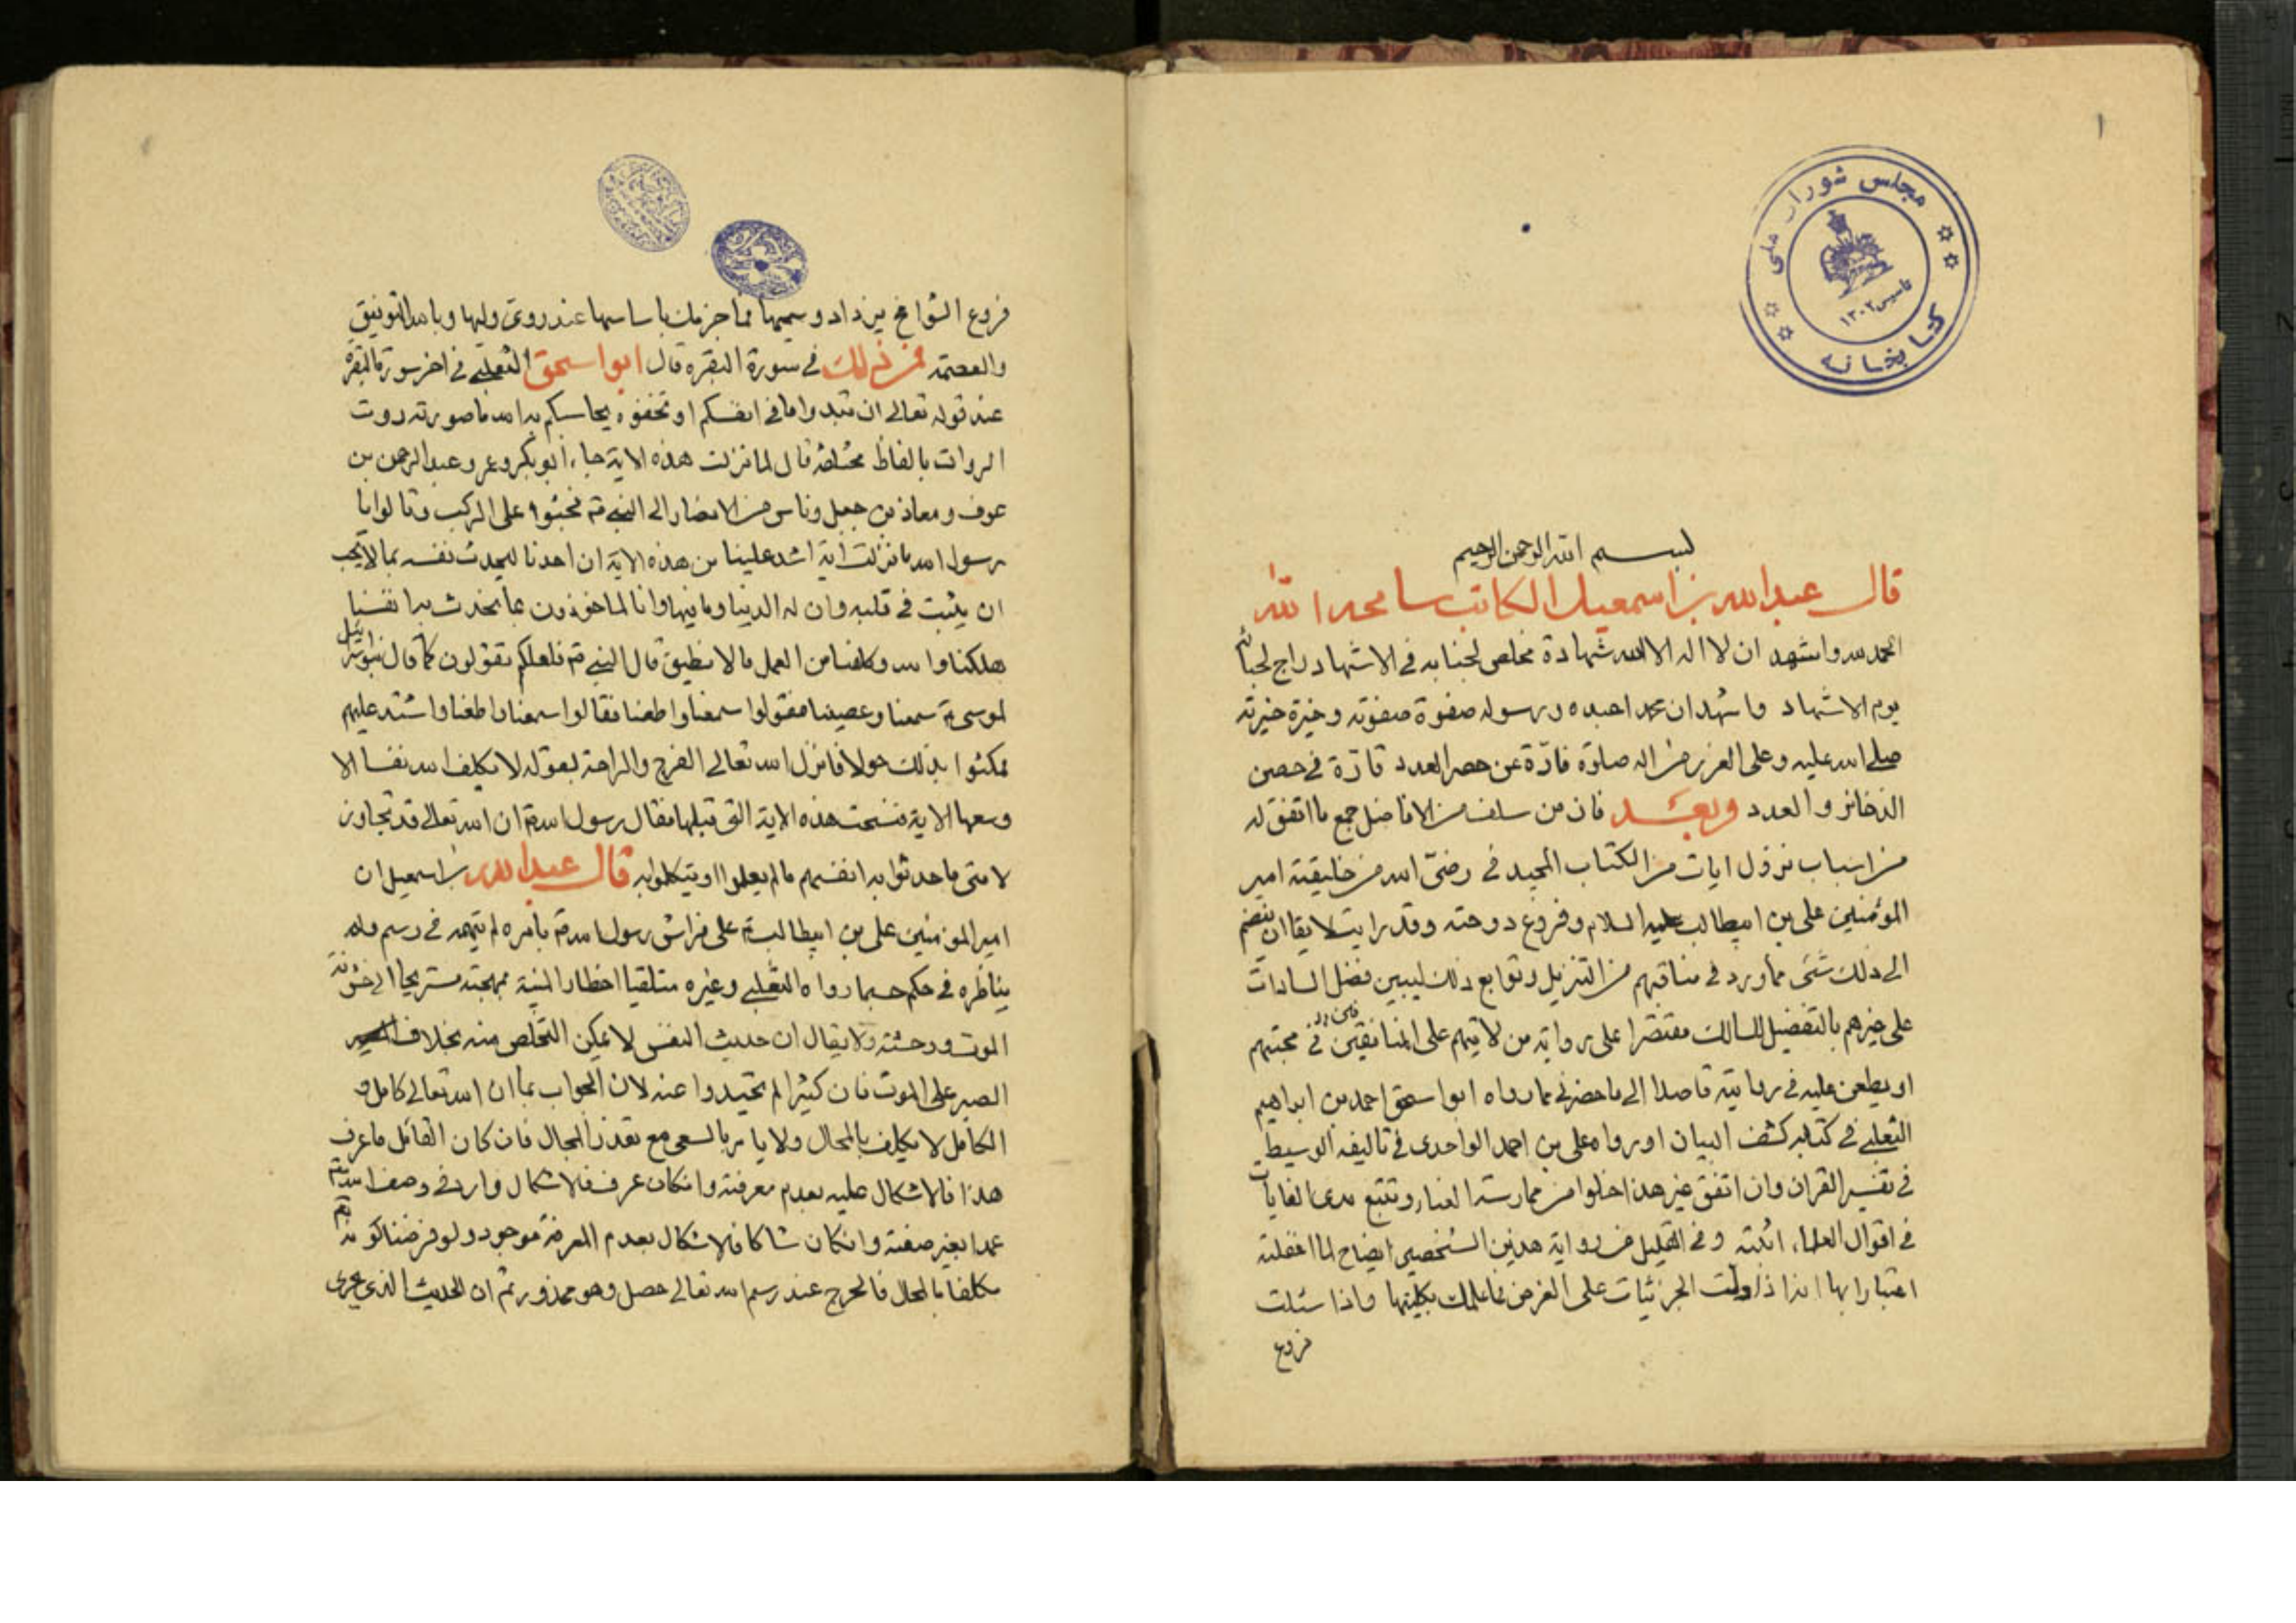 ١
مجلس شورای ملی
تاسیس ١٣٠٢
کتابخانه
بسم الله الرحمن الرحيم
قال عبد الله بن اسمعيل الكاتب سامحه الله
الحمد لله واشهد ان لا اله الا الله شهادة مخلص لجنابه في الاشهاد راج لحبائه
يوم الاشهاد واشهد ان محمدا عبده ورسوله صفوة صفوته وخيرة خيرته
صلى الله عليه وعلى الغرر من اله صلوة فادّة عن حصر العدد قارّة في حصين
الذخائر والعدد وبعد فان من سلف من الافاضل جمع ما اتفق له
من اسباب نزول ايات من الكتاب المجيد في رضىّ الله من خليقته امير
المؤمنين على بن ابيطالب عليه السلام وفروع دوحته وقد رايت لايقا ان ينضم
الى ذلك شئ مما ورد في مناقبهم من التنزيل وتوابع ذلك ليبين فضل السادات
على غيرهم بالتفضيل للسالك مقتصرا على رواية من لا يتهم على المنافقين في محبتهم
او يطعن عليه في روايته قاصدا الى ما حضرني مما رواه ابو اسحق احمد بن ابراهيم
الثعلبي في كتابه كشف البيان او رواه على بن احمد الواحدى في تاليفه الوسيط
في تفسير القران وان اتفق غير هذا خلوا من ممارسة العناء وتتبع مدى الغايات
في اقوال العلماء اثبته وفي القليل من رواية هذين الشخصين ايضاح لما اغفلته
اعتبارا بها اذا دلت الجزئيات على الغرض فاعلمك بكليتها واذا سئلت
فروع
فروع الشوامخ يزداد وسيمها فما جزمك باساسها عند روىّ وليها وبالله التوفيق
والعصمة فمن ذلك في سورة البقرة قال ابو اسحق الثعلبي في اخر سورة البقرة
عند قوله تعالى ان تبدوا ما في انفسكم او تخفوه يحاسبكم به الله ما صورته روت
الروات بالفاظ مختلفة قال لما نزلت هذه الاية جاء ابو بكر وعمر وعبد الرحمن بن
عوف ومعاذ بن جبل وناس من الانصار الى النبي ص فجثوا على الركب وقالوا يا
رسول الله ما نزلت آية اشد علينا من هذه الاية ان احدنا ليحدث نفسه بما لا يحب
ان يثبت في قلبه وان له الدنيا وما فيها وانا لماخوذون بما نحدث به انفسنا
هلكنا والله وكلفنا من العمل ما لا نطيق قال النبي ص فلعلكم تقولون كما قال بنو اسرائيل
لموسى ع سمعنا وعصينا فقولوا سمعنا واطعنا فقالوا سمعنا واطعنا واشتد عليهم
فمكثوا بذلك حولا فانزل الله تعالى الفرج والراحة بقوله لا يكلف الله نفسا الا
وسعها الاية فنسخت هذه الاية التى قبلها فقال رسول الله ص ان الله تعالى قد تجاوز
لامتى ما حدثوا به انفسهم ما لم يعملوا او يتكلموا به قال عبد الله بن اسمعيل ان
امير المؤمنين على بن ابيطالب ع على فراش رسول الله ص بامره لم يتهمه في رسم ولم
يناظره في حكم حسبما رواه الثعلبي وغيره متلقيا اخطار المنية بمهجته مستريحا الى خشونة
الموت ووحشته ولا يقال ان حديث النفس لا يمكن التخلص منه بخلاف
الصبر على الموت فان كثيرا لم يحيدوا عنه لان الجواب بما ان الله تعالى كامل و
الكامل لا يكلف بالمحال ولا يامر بالسعى مع تعذر المجال فان كان القائل ما عرف
هذا فالاشكال عليه بعدم معرفته وان كان عرف فالاشكال وارد في وصف الله تعالى
عمدا بغير صفته وان كان شاكا فالاشكال بعدم المعرفة موجود ولو فرضنا كونه
مكلفا بالمحال فالحرج عند رسم الله تعالى حصل وهو محذور ثم ان الحديث الذى جرى